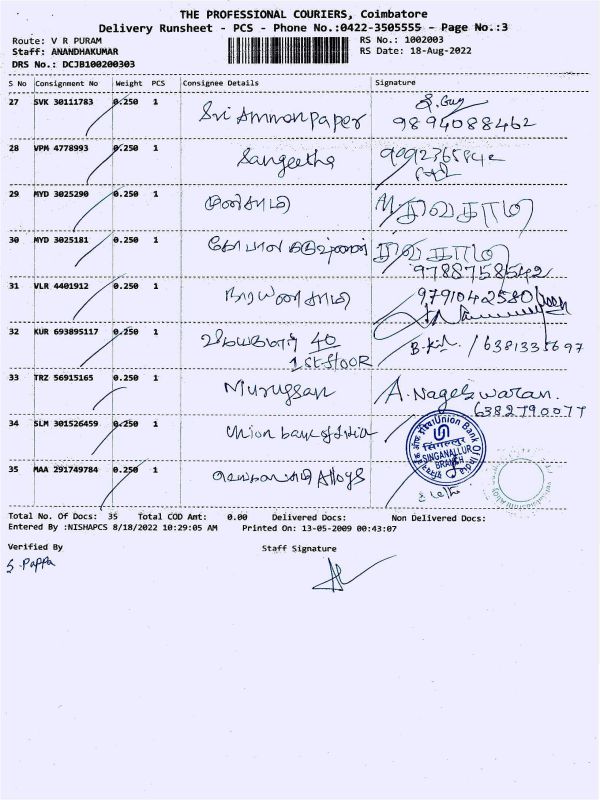 THE PROFESSIONAL COURIERS, Coimbatore
Delivery Runsheet - PCS - Phone No.:0422-3505555 - Page No.:3
Route: V R PURAM RS No.: 1002003
Staff: ANANDHAKUMAR RS Date: 18-Aug-2022
DRS No.: DCJB100200303
S No Consignment No Weight PCS Consignee Details Signature
27 SVK 30111783 0.250 1 Sri Amman paper 9894088462
28 VPM 4778993 0.250 1 Sangeetha
29 MYD 3025290 0.250 1 முனிசாமி சிவகாமி
30 MYD 3025181 0.250 1 கோபால சிவகாமி
9788758542
31 VLR 4401912 0.250 1 9791042580
32 KUR 693895117 0.250 1 விஜயகுமார் 40
1st floor 6381335697
33 TRZ 56915165 0.250 1 Murugesan A. Nageswaran.
6382790077
34 SLM 301526459 0.250 1 Union bank of India Union Bank Of India
SINGANALLUR
BRANCH
35 MAA 291749784 0.250 1 Alloys
Total No. Of Docs: 35 Total COD Amt: 0.00 Delivered Docs: Non Delivered Docs:
Entered By :NISHAPCS 8/18/2022 10:29:05 AM Printed On: 13-05-2009 00:43:07
Verified By Staff Signature
S. Pappa